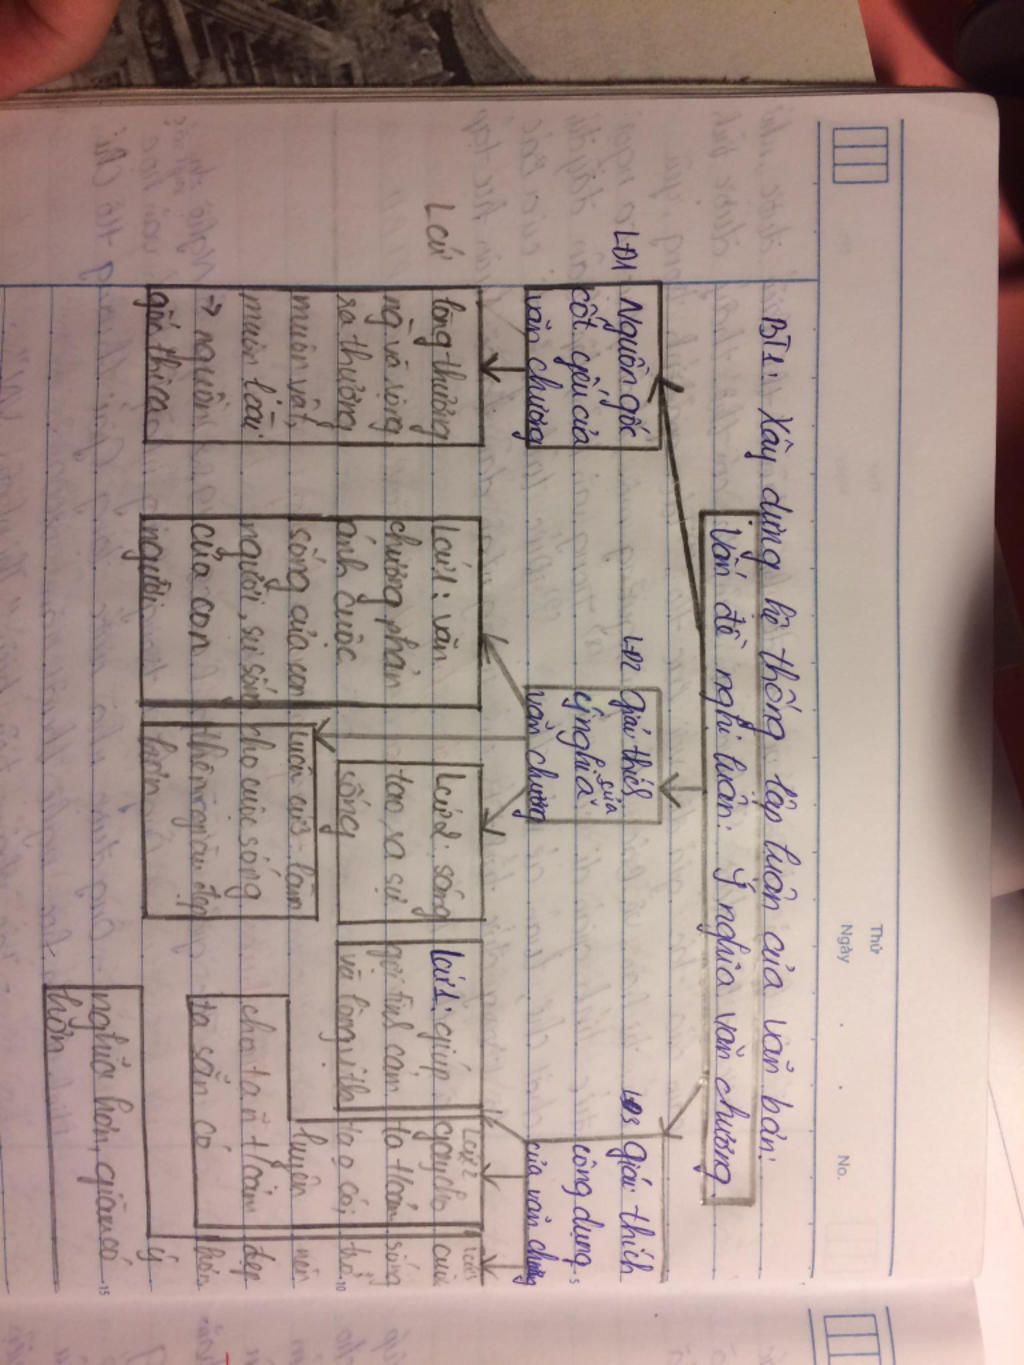 Thứ
Ngày . . No.
BT1: Xây dựng hệ thống lập luận của văn bản:
Vấn đề nghị luận: Ý nghĩa văn chương
LĐ1
Nguồn gốc
cốt yếu của
văn chương
LĐ2 Giải thích
ý nghĩa của
văn chương
LĐ3 Giải thích
công dụng
của văn chương
L cứ
lòng thương
ng và rộng
ra thương
muôn vật,
muôn loài
→ nguồn
gốc thi ca
Lcứ1: văn
chương phản
ánh cuộc
sống của con
người, sự sống
của con
người
Lcứ2: sáng
tạo ra sự
sống
Luận cứ3: làm
cho cuộc sống
thêm giàu đẹp
hơn
Lcứ1: giúp
gợi tình cảm
và lòng vị tha
Lcứ2
gây cho
ta t/cảm
ta o có,
luyện
cho ta ~ t/cảm
ta sẵn có
Lcứ3
cuộc
sống
trở
nên
đẹp
hơn,
ý
nghĩa hơn, giàu có
hơn
5
10
15